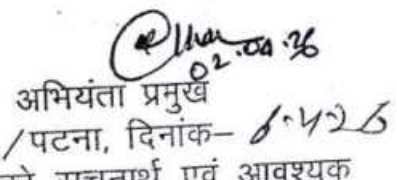 02.04.26
अभियंता प्रमुख
/पटना, दिनांक– 6.4.26
सूचनार्थ एवं आवश्यक